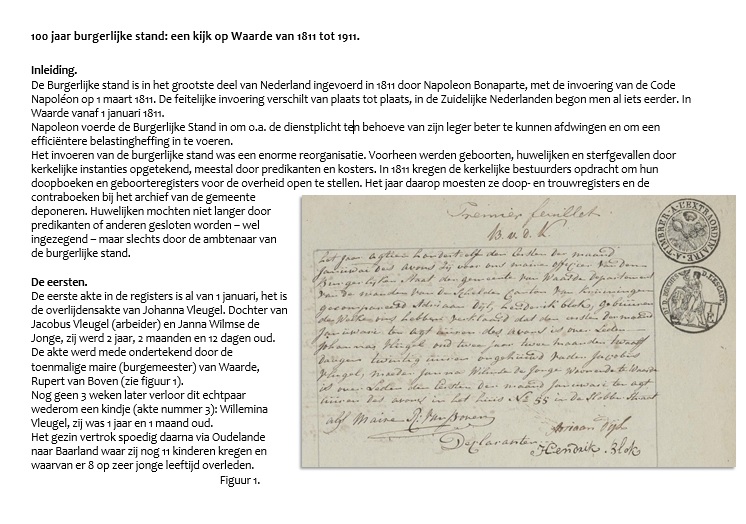 100 jaar burgerlijke stand: een kijk op Waarde van 1811 tot 1911.
Inleiding.
De Burgerlijke stand is in het grootste deel van Nederland ingevoerd in 1811 door Napoleon Bonaparte, met de invoering van de Code
Napoléon op 1 maart 1811. De feitelijke invoering verschilt van plaats tot plaats, in de Zuidelijke Nederlanden begon men al iets eerder. In
Waarde vanaf 1 januari 1811.
Napoleon voerde de Burgerlijke Stand in om o.a. de dienstplicht ten behoeve van zijn leger beter te kunnen afdwingen en om een
efficiëntere belastingheffing in te voeren.
Het invoeren van de burgerlijke stand was een enorme reorganisatie. Voorheen werden geboorten, huwelijken en sterfgevallen door
kerkelijke instanties opgetekend, meestal door predikanten en kosters. In 1811 kregen de kerkelijke bestuurders opdracht om hun
doopboeken en geboorteregisters voor de overheid open te stellen. Het jaar daarop moesten ze doop- en trouwregisters en de
contraboeken bij het archief van de gemeente
deponeren. Huwelijken mochten niet langer door
predikanten of anderen gesloten worden – wel
ingezegend – maar slechts door de ambtenaar van
de burgerlijke stand.
De eersten.
De eerste akte in de registers is al van 1 januari, het is
de overlijdensakte van Johanna Vleugel. Dochter van
Jacobus Vleugel (arbeider) en Janna Wilmse de
Jonge, zij werd 2 jaar, 2 maanden en 12 dagen oud.
De akte werd mede ondertekend door de
toenmalige maire (burgemeester) van Waarde,
Rupert van Boven (zie figuur 1).
Nog geen 3 weken later verloor dit echtpaar
wederom een kindje (akte nummer 3): Willemina
Vleugel, zij was 1 jaar en 1 maand oud.
Het gezin vertrok spoedig daarna via Oudelande
naar Baarland waar zij nog 11 kinderen kregen en
waarvan er 8 op zeer jonge leeftijd overleden.
Figuur 1.
Premier feuillet
R. v. d. V.
het jaar agtien hondert elf den Eersten der maand
Januwarie des avons
Burgerlijken Staat der gemeente van Waarde departement
van de monden van de Schelde Canton van
Adriaan Dijl, hendrik blok, gebueren
verklaard dat den eersten der maand
Januwarie ten agt uuren des avons is over Leden
Johanna Vleugel oud twee jaar twee maanden twaalf
daegen
Vleugel, moeder Janna Wilmse de Jonge Woonende te Waarde
is over Leden den Eersten der maand januwarie ten agt
uuren des avons in het huis No 55 in de Slobbe Straat
als Maire R. Van Boven
Adriaan Dijl
Declaranten Hendrik Blok
A TIMBRER A L'EXTRAORDINAIRE